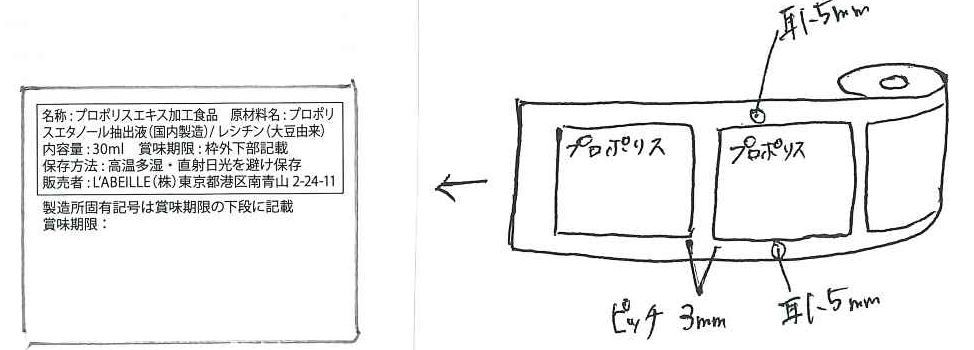 名称：プロポリスエキス加工食品　原材料名：プロポリ
スエタノール抽出液（国内製造）/ レシチン（大豆由来）
内容量：30ml　賞味期限：枠外下部記載
保存方法：高温多湿・直射日光を避け保存
販売者：L'ABEILLE（株）東京都港区南青山 2-24-11
製造所固有記号は賞味期限の下段に記載
賞味期限：
耳1.5mm
プロポリス
プロポリス
ピッチ 3mm
耳1.5mm